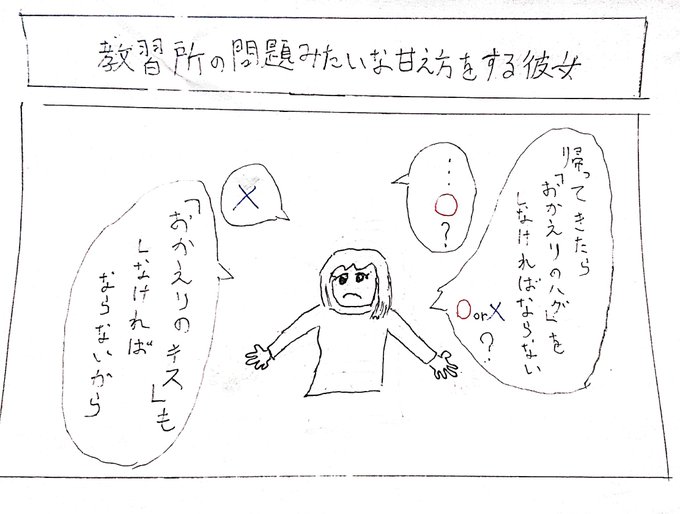 教習所の問題みたいな甘え方をする彼女
帰ってきたら
「おかえりのハグ」を
しなければならない
O or X
?
…
O
?
X
「おかえりのキス」も
しなければ
ならないから